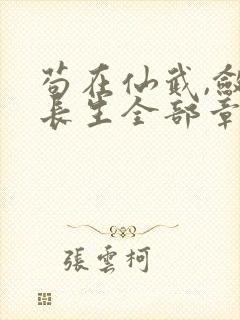 苟在仙武,敛
長生全部章
張雲柯